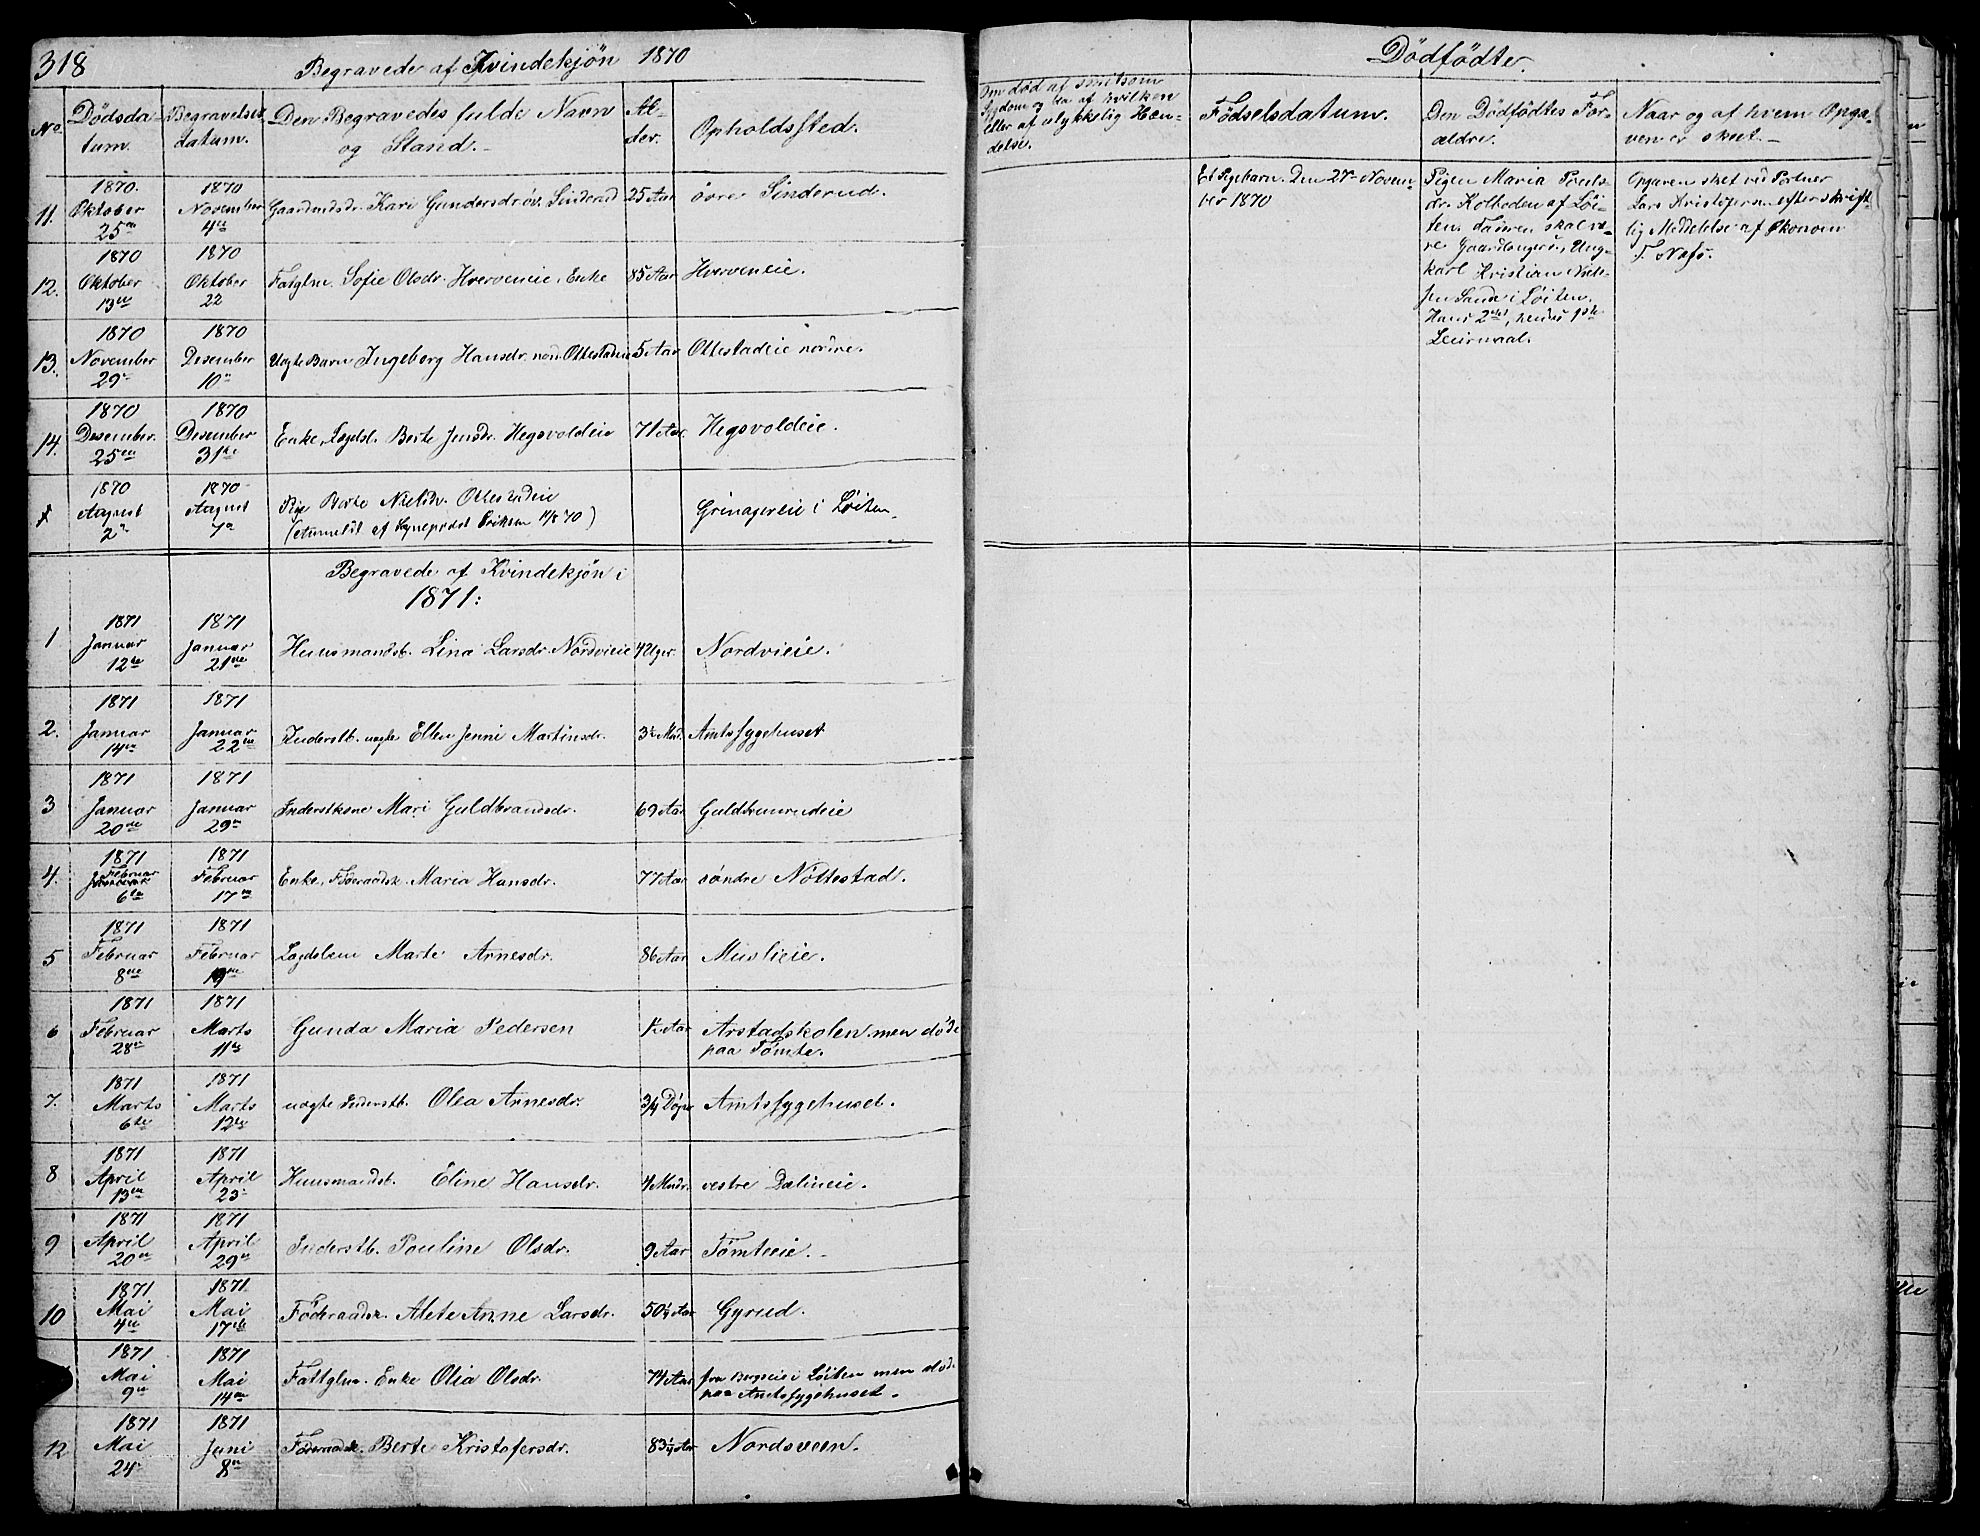 318
Begravede af Kvindekjön 1870
No. Dödsdatum. Begravelsesdatum. Den Begravedes fulde Navn og Stand. Alder. Opholdssted.
11. 1870. Oktober 25de 1870 November 4de Gaardmdsdr. Kari Gundersdr. öv. Sinderud 25 Aar övre Sinderud.
12. 1870 Oktober 13de 1870 Oktober 22 Fatglm. Sofie Olsdr. Hverveneie, Enke 85 Aar Hverveneie.
13. 1870 November 29 1870 Desember 10 Uægte Barn Ingeborg Hansdr. nor. Ottestadeie 5 Aar Ottestadeie nordre.
14. 1870 Desember. 25de 1870 Desember 31te Enke, Lægdsl. Berte Jensdr. Hegsvoldeie 71 Aar Hegsvoldeie.
1870 August 2 1870 August 7 Pige Berte Nielsdr. Ottestadeie
(Anmeldt af Sogneprest Eriksen 11/8 70) Grinagereie i Löiten.
Begravede af Kvindekjön i
1871:
1 1871 Januar 12te 1871 Januar 21de Huusmandsb. Lina Larsdr. Nordvieie 4 Uger. Nordvieie.
2. 1871 Januar 14de 1871 Januar 22de Inderstb. uægte Ellen Jenni Martinsdr. 3½ Md. Amtssygehuset
3 1871 Januar 20de 1871 Januar 29 Inderstkone Mari Guldbrandsdr. 69 Aar
4. 1871 Februar 6te 1871 Februar 17 Enke, Föderaadsk. Maria Hansdr. 77 Aar söndre Nöttestad.
5 1871 Februar 8de 1871 Februar Lægdslem Marte Arnesdr. 86 Aar Muslieie.
6 1871 Februar 28 1871 Marts 11te Gunda Maria Pedersen Aar Arstadskolen men döde
paa Tömte.
7. 1871 Marts 6te 1871 Marts 12te uægte Inderstb. Olea Arnesdr. 3/4 Dögn Amtssygehuset.
8 1871 April 13de 1871 April 23 Huusmandsb. Eline Hansdr. 4 Mndr. vestre Dælineie.
9 1871 April 20 1871 April 29 Inderstb. Pauline Olsdr. 9 Aar Tömteeie.
10 1871 Mai 4de 1871 Mai 17de Föderaadsk. Alete Anne Larsdr. 50¼ Aar Gyrud.
1871 Mai 9de 1871 Mai 14de Fattglm. Enke Olia Olsdr. 74 Aar fra Bergseie i Löiten men död
paa Amtssygehuset.
12 1871 Mai 24 1871 Juni 8 Föderaadsk. Berte Kristofersdr. 83¼ Aar Nordsveen.
Dödfödte.
Om död af smitsom
Sygdom og da af hvilken
eller af ulykkelig Hændelse.
Födselsdatum.
Den Dödfödtes Forældre.
Naar og af hvem Opgaven er skeet.
Et Pigebarn. Den 27 November 1870
Pigen Maria
dr. Kolboden af Löiten. Faderen skal være
Gaardbruger, Ungkarl Kristian Nielsen
Sand i Löiten.
Hans 2det, hendes 1ste
Leiermaal.
Opgaven sket ved Portner
Lars Kristofersen efter skriftlig
Meddelelse af Økonom
T. Næss.